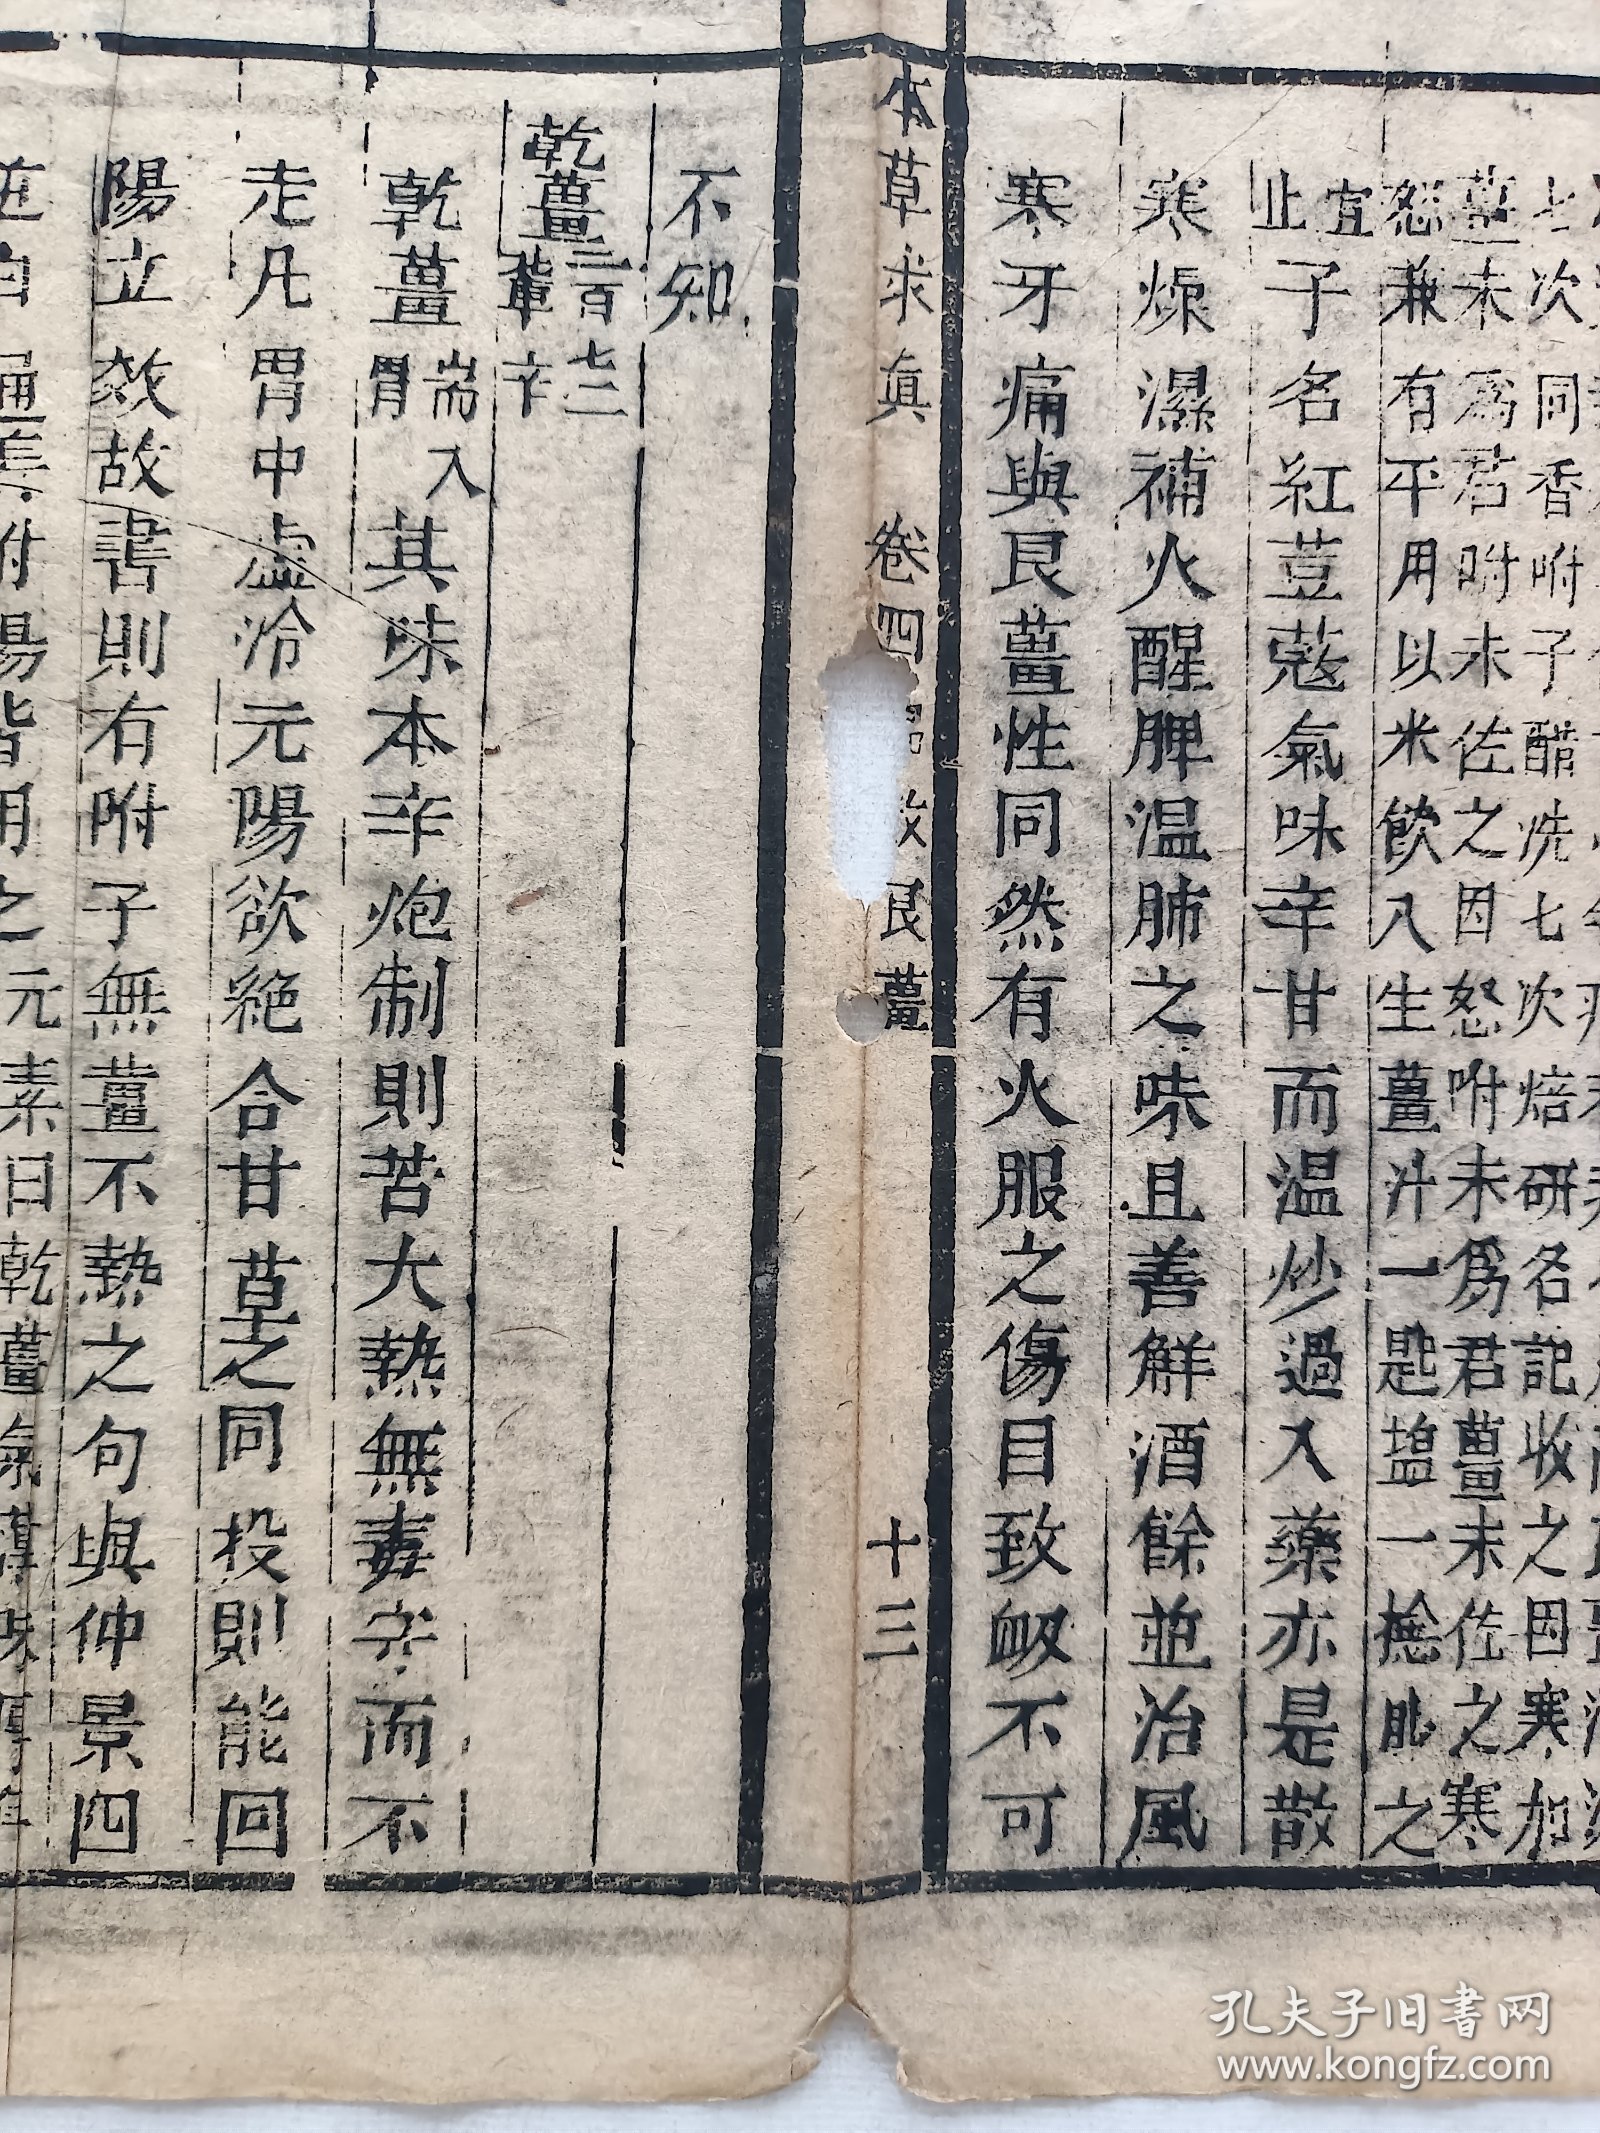 七次同香附子醋洗七次焙研名記收之因寒加
薑末為君附末佐之因怒附末為君薑末佐之寒
怒兼有平用以米飲入生薑汁一匙塩一捻
之
宜
止
子名紅荳蔻氣味辛甘而温炒過入藥亦是散
寒燥濕補火醒脾温肺之味且善解酒餘並治風
寒牙痛與良薑性同然有火服之傷目致衂不可
本草求真 卷四 良薑 十三
不知
乾薑二百七二
葷辛
乾薑
耑入
胃
其味本辛炮制則苦大熱無毒守而不
走凡胃中虛冷元陽欲絕合甘草之同投則能回
陽立效故書則有附子無薑不熱之句與仲景四
逆白通姜附湯皆用之元素曰乾薑氣薄味厚
孔夫子旧書网
www.kongfz.com